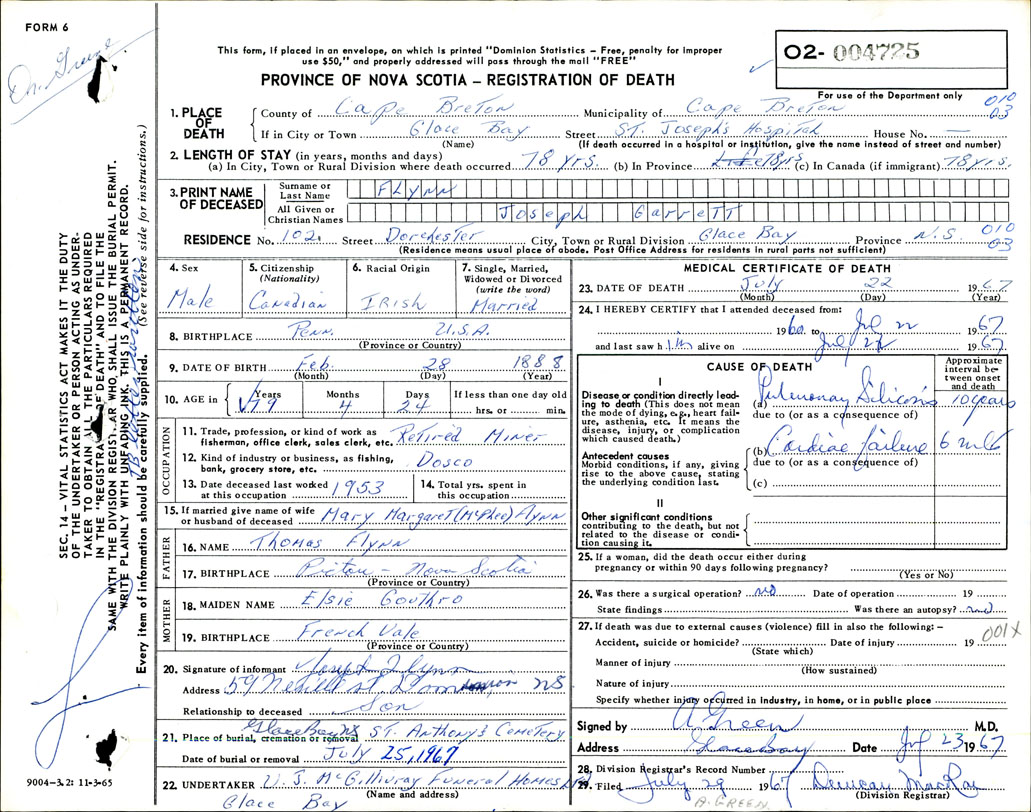 FORM 6
Dr. Green
This form, if placed in an envelope, on which is printed "Dominion Statistics – Free, penalty for improper
use $50," and properly addressed will pass through the mail "FREE"
PROVINCE OF NOVA SCOTIA – REGISTRATION OF DEATH
O2- 004725
For use of the Department only
010
03
1. PLACE OF DEATH
County of Cape Breton Municipality of Cape Breton
If in City or Town Glace Bay Street St. Joseph's Hospital House No. —
(Name) (If death occurred in a hospital or institution, give the name instead of street and number)
2. LENGTH OF STAY (in years, months and days)
(a) In City, Town or Rural Division where death occurred 78 yrs. (b) In Province 78 yrs (c) In Canada (if immigrant) 78 yrs.
3. PRINT NAME OF DECEASED
Surname or Last Name FLYNN
All Given or Christian Names Joseph Garrett
RESIDENCE No. 102 Street Dorchester City, Town or Rural Division Glace Bay Province N.S. 010
03
(Residence means usual place of abode. Post Office Address for residents in rural parts not sufficient)
4. Sex
Male
5. Citizenship
(Nationality)
Canadian
6. Racial Origin
IRISH
7. Single, Married,
Widowed or Divorced
(write the word)
Married
8. BIRTHPLACE Penn. U.S.A.
(Province or Country)
9. DATE OF BIRTH Feb. 28 1888
(Month) (Day) (Year)
10. AGE in
Years 79
Months 4
Days 24
If less than one day old
hrs. or min.
OCCUPATION
11. Trade, profession, or kind of work as
fisherman, office clerk, sales clerk, etc. Retired Miner
12. Kind of industry or business, as fishing,
bank, grocery store, etc. Dosco
13. Date deceased last worked
at this occupation 1953
14. Total yrs. spent in
this occupation
15. If married give name of wife
or husband of deceased Mary Margaret (McPhee) Flynn
FATHER
16. NAME Thomas Flynn
17. BIRTHPLACE Pictou – Nova Scotia
(Province or Country)
MOTHER
18. MAIDEN NAME Elsie Gouthro
19. BIRTHPLACE French Vale
(Province or Country)
20. Signature of informant Joseph Flynn
Address 59 Nevill St. Dominion NS
Relationship to deceased Son
21. Place of burial, cremation or removal Glace Bay NS St. Anthony's Cemetery
Date of burial or removal July 25, 1967
22. UNDERTAKER V. J. McGillivray Funeral Homes
(Name and address)
Glace Bay
MEDICAL CERTIFICATE OF DEATH
23. DATE OF DEATH July 22 1967
(Month) (Day) (Year)
24. I HEREBY CERTIFY that I attended deceased from:
1960 to Jul 22 1967
and last saw him alive on Jul 22 1967
CAUSE OF DEATH
Approximate
interval be-
tween onset
and death
I
Disease or condition directly lead-
ing to death (This does not mean
the mode of dying, e.g., heart fail-
ure, asthenia, etc. It means the
disease, injury, or complication
which caused death.)
(a) Pulmonary Silicosis 10 years
due to (or as a consequence of)
Antecedent causes
Morbid conditions, if any, giving
rise to the above cause, stating
the underlying condition last.
(b) Cardiac failure 6 mths
due to (or as a consequence of)
(c)
II
Other significant conditions
contributing to the death, but not
related to the disease or condi-
tion causing it.
25. If a woman, did the death occur either during
pregnancy or within 90 days following pregnancy?
(Yes or No)
26. Was there a surgical operation? no Date of operation 19
State findings Was there an autopsy? no
27. If death was due to external causes (violence) fill in also the following: –
Accident, suicide or homicide? Date of injury 19
(State which)
001X
Manner of injury
(How sustained)
Nature of injury
Specify whether injury occurred in industry, in home, or in public place
Signed by A Green M.D.
Address Glace Bay Date Jul 23 1967
28. Division Registrar's Record Number
29. Filed July 29 1967 Duncan MacRae
(Division Registrar)
A. GREEN
SEC. 14 – VITAL STATISTICS ACT MAKES IT THE DUTY
OF THE UNDERTAKER OR PERSON ACTING AS UNDER-
TAKER TO OBTAIN ALL THE PARTICULARS REQUIRED
IN THE "REGISTRATION OF DEATH" AND TO FILE THE
SAME WITH THE DIVISION REGISTRAR WHO SHALL ISSUE THE BURIAL PERMIT.
WRITE PLAINLY WITH UNFADING INK. THIS IS A PERMANENT RECORD.
Every item of information should be carefully supplied. (See reverse side for instructions.)
9004-3.2: 11-3-65